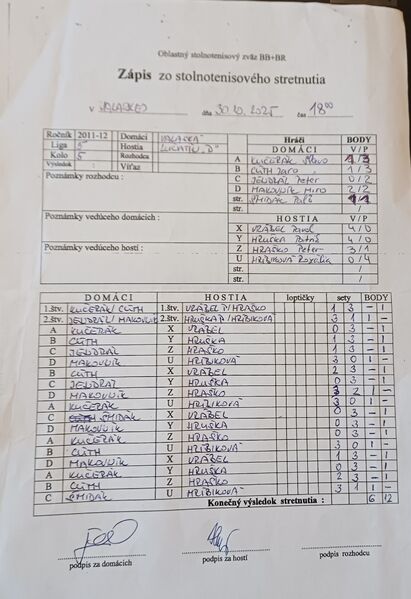 Oblastný stolnotenisový zväz BB+BR
Zápis zo stolnotenisového stretnutia
v VALASKEJ dňa 30.10.2025 čas 18:00
Ročník 2011-12 Domáci VALASKÁ
Liga 5 Hostia LUCATÍN "D"
Kolo 5 Rozhodca
Výsledok : Víťaz
Poznámky rozhodcu :
Poznámky vedúceho domácich :
Poznámky vedúceho hostí :
Hráči BODY
DOMÁCI V/P
A KUČERÁK 1/3
B CÚTH Jaro 1/3
C JENDRÁL Peter 0/2
D MAKOVNÍK Miro 2/2
str. ŠMIDÁK 1/1
HOSTIA V/P
X VRÁBEL Pavol 4/0
Y HRUŠKA 4/0
Z HRAŠKO Peter 3/1
U HRÍBIKOVÁ Rozália 0/4
str. /
str. /
DOMÁCI HOSTIA loptičky sety BODY
1.štv. KUČERÁK/ CÚTH 1.štv. VRÁBEL P/HRAŠKO 1 3 – 1
2.štv. JENDRÁL/ MAKOVNÍK 2.štv. HRUŠKA P/HRÍBIKOVÁ 3 1 –
A KUČERÁK X VRÁBEL 0 3 – 1
B CÚTH Y HRUŠKA 1 3 – 1
C JENDRÁL Z HRAŠKO 1 3 – 1
D MAKOVNÍK U HRÍBIKOVÁ 3 0 1 –
B CÚTH X VRÁBEL 2 3 – 1
C JENDRÁL Y HRUŠKA 0 3 – 1
D MAKOVNÍK Z HRAŠKO 3 2 1 –
A KUČERÁK U HRÍBIKOVÁ 3 0 1 –
C ŠMIDÁK X VRÁBEL 0 3 – 1
D MAKOVNÍK Y HRUŠKA 0 3 – 1
A KUČERÁK Z HRAŠKO 0 3 – 1
B CÚTH U HRÍBIKOVÁ 3 0 1 –
D MAKOVNÍK X VRÁBEL 1 3 – 1
A KUČERÁK Y HRUŠKA 0 3 – 1
B CÚTH Z HRAŠKO 2 3 – 1
C ŠMIDÁK U HRÍBIKOVÁ 3 1 1 –
Konečný výsledok stretnutia : 6 12
podpis za domácich podpis za hostí podpis rozhodcu